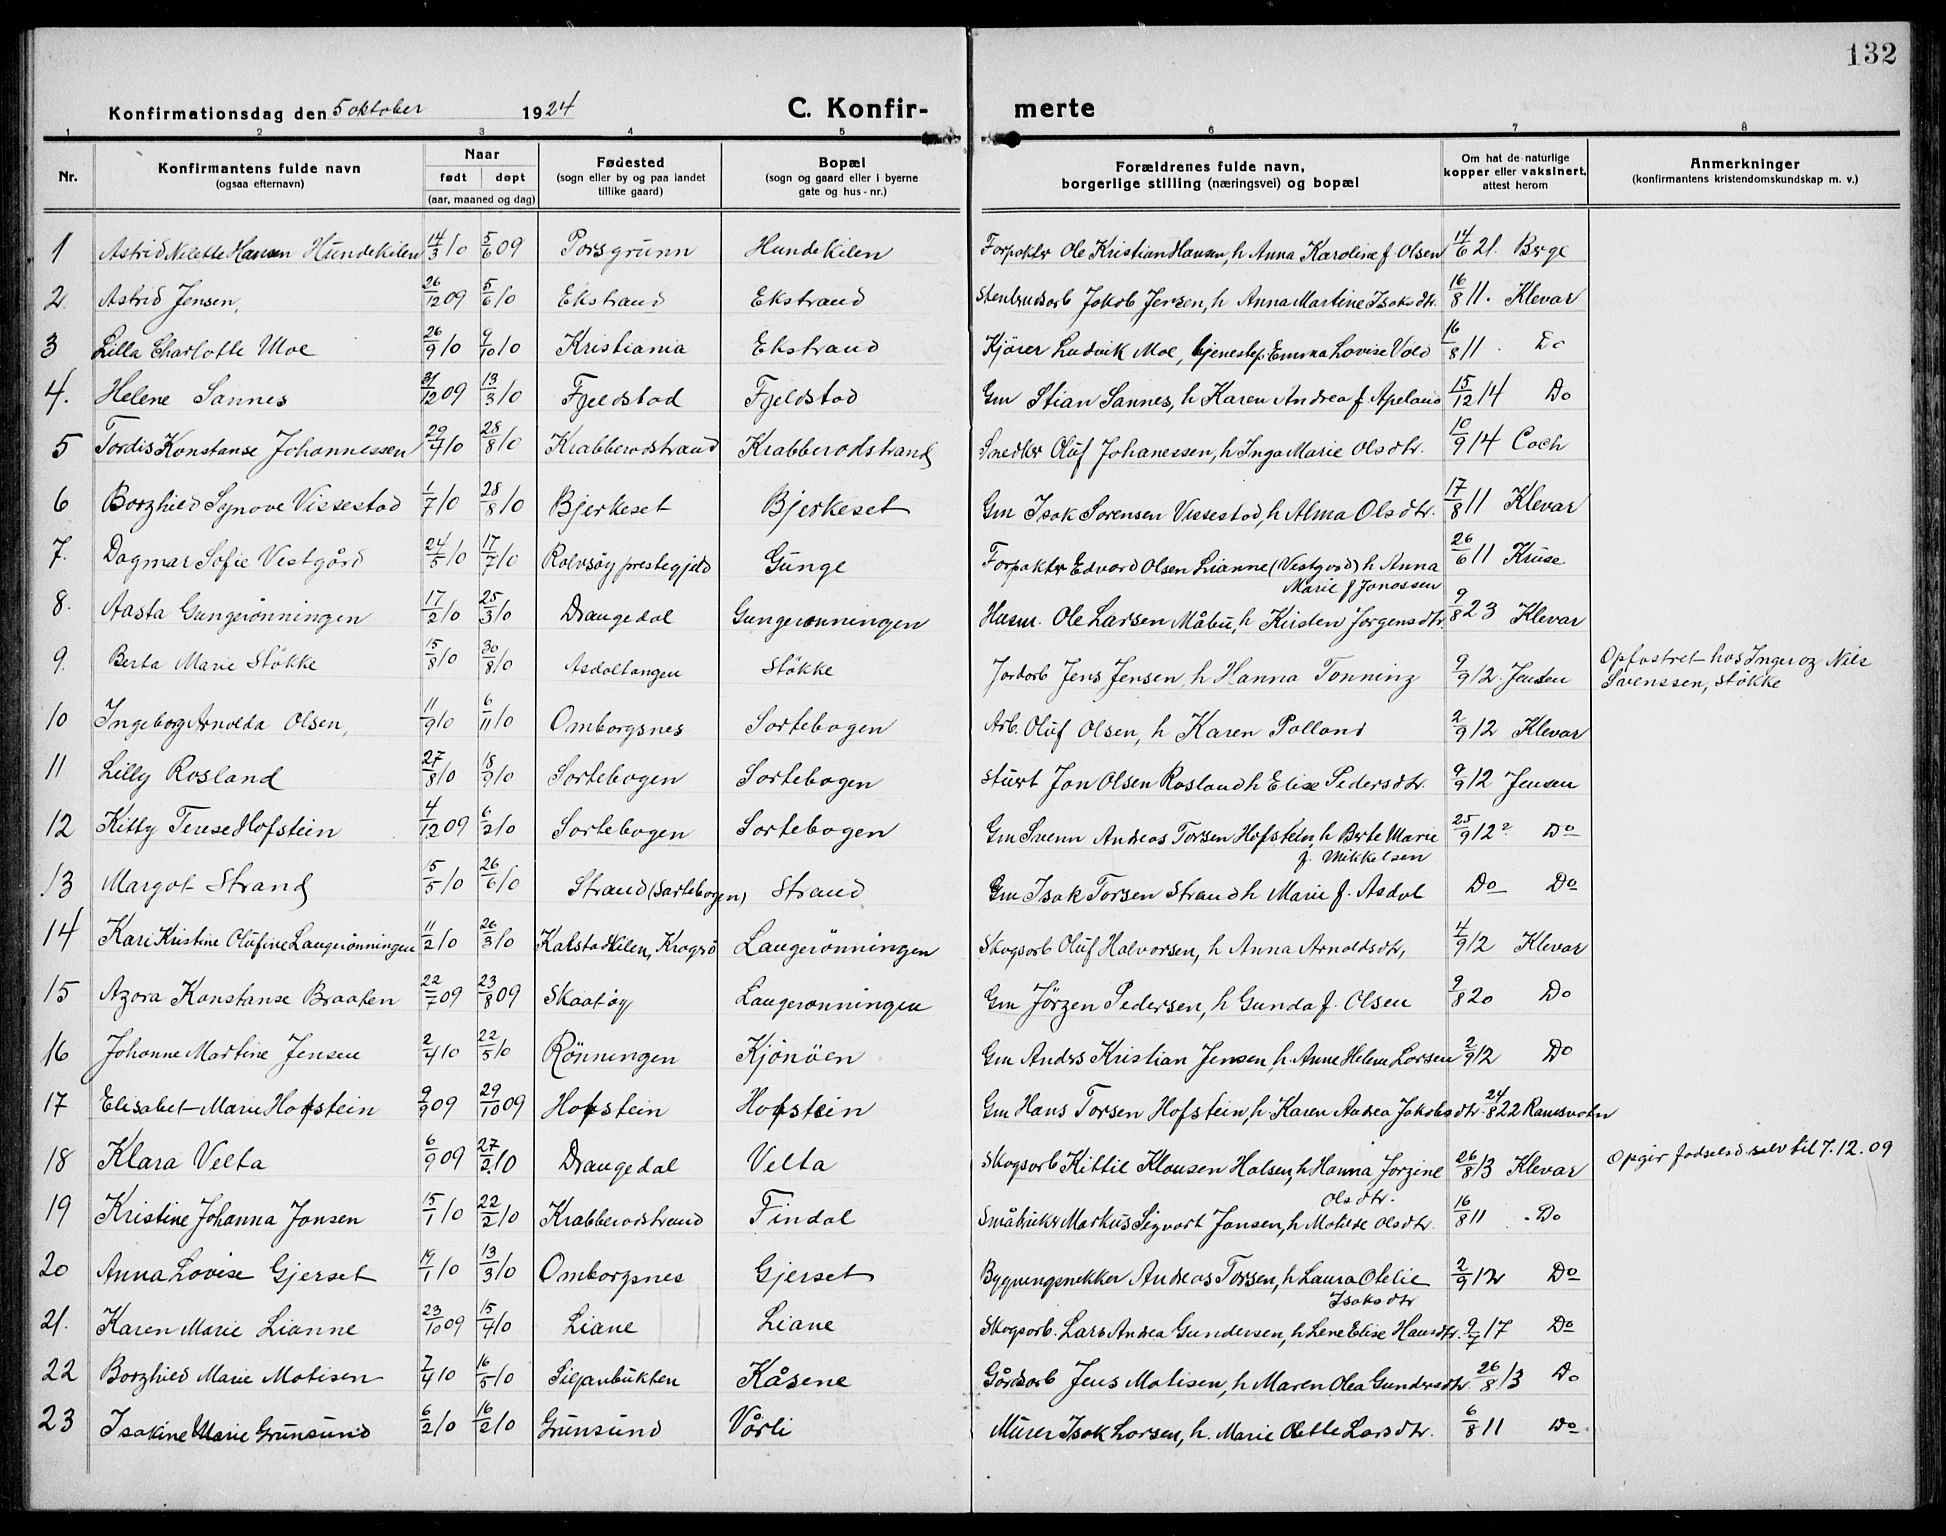 132
Konfirmationsdag den 5 oktober 1924 C. Konfir- merte
1 2 3 4 5 6 7 8
Nr. Konfirmantens fulde navn (ogsaa efternavn) Naar født døpt (aar, maaned og dag) Fødested (sogn eller by og paa landet tillike gaard) Bopæl (sogn og gaard eller i byerne gate og hus-nr.) Forældrenes fulde navn, borgerlige stilling (næringsvei) og bopæl Om hat de naturlige kopper eller vaksinert, attest herom Anmerkninger (konfirmantens kristendomskundskap m. v.)
1 Astrid Nilette Hansen Hundekilen 14/3 10 5/6 09 Porsgrunn Hundekilen Forpakter Ole Kristian Hansen, h Anna Karoline f Olsen 14/6 21. Berge
2. Astrid Jensen, 26/12 09 5/6 10 Ekstrand Ekstrand Stenbrudsarb Jakob Jensen, h Anna Martine Isaksdtr. 16/8 11. Klevar
3 Lilla Charlotte Moe 26/9 10 9/10 10 Kristiania Ekstrand Kjører Ludvik Moe, tjenestep. Emma Lovise Vold 16/8 11 Do
4. Helene Sannes 31/12 09 13/3 10 Fjeldstad Fjeldstad Gm Stian Sannes, h Karen Andrea f Apeland 15/12 14 Do
5 Tordis Konstanse Johannessen 29/7 10 28/8 10 Krabberødstrand Krabberødstrand Snedker Oluf Johanessen, h Inga Marie Olsdtr. 10/9 14 Coch
6 Borghild Synøve Vissestad 1/7 10 28/8 10 Bjerkeset Bjerkeset Gm Isak Sørensen Vissestad, h Alma Olsdtr. 17/8 11 Klevar
7. Dagmar Sofie Vestgård 24/5 10 17/7 10 Rolvsøy prestegjeld Gunge Forpakter Edvard Olsen Lianne (Vestgård) h Anna Marie f Jonassen 26/6 11 Kruse
8. Aasta Gungerønningen 17/2 10 25/3 10 Drangedal Gungerønningen Husm. Ole Larsen Måbu, h Kirsten Jørgensdtr 9/8 23 Klevar
9. Berta Marie Støkke 15/8 10 30/8 10 Asdaltangen Støkke Jordarb Jens Jensen, h Hanna Tønning 9/9 12. Jensen Opfostret hos Inger og Nils Sørenssen, Støkke
10 Ingeborg Arnolda Olsen, 11/9 10 6/11 10 Omborgsnes Sortebogen Arb. Oluf Olsen, h Karen Polland 2/9 12 Klevar
11 Lilly Rosland 27/8 10 18/9 10 Sortebogen Sortebogen Stuert Jon Olsen Rosland h Elise Pedersdtr. 9/9 12 Jensen
12 Kitty Terese Hofstein 4/12 09 6/2 10 Sortebogen Sortebogen Gm Svenn Andreas Torsen Hofstein, h Berte Marie f. Mikkelsen 25/9 12? Do
13 Margot Strand 15/5 10 26/6 10 Strand (Sortebogen) Strand Gm Isak Torsen Strand h Marie f. Asdal Do Do
14 Kari Kristine Olufine Laugerønningen 11/2 10 26/3 10 Kalstadkilen, Kragerø Laugerønningen Skogsarb Oluf Halvorsen, h Anna Arnoldsdtr, 4/9 12 Klevar
15 Azora Konstanse Braaten 22/7 09 23/8 09 Skaatøy Laugerønningen Gm Jørgen Pedersen, h Gunda f. Olsen 9/8 20 Do
16 Johanne Martine Jensen 2/4 10 22/5 10 Rönningen Kjönöen Gm Anders Kristian Jensen, h Anne Helene Larsen 2/9 12 Do
17 Elisabet Marie Hofstein 9/9 09 29/10 09 Hofstein Hofstein Gm Hans Torsen Hofstein, h Karen Andrea Jakobsdtr. 24/8 22 Ramsvatn
18 Klara Velta 6/9 09 27/2 10 Drangedal Velta Skogsarb Kittil Klausen Halsen, h Hanna Jørgine Olsdtr. 26/8 13 Klevar Opgir fødselsd selv til 7.12.09
19 Kristine Johanna Jansen 15/1 10 22/2 10 Krabberødstrand Findal Småbruker Markus Sigvart Jansen, h Matilde Olsdtr. 16/8 11 Do
20 Anna Lovise Gjerset 19/1 10 13/3 10 Omborgsnes Gjerset Bygningsnekker Andreas Torsen, h Laura Otelie Isaksdtr 2/9 12 Do
21. Karen Marie Lianne 23/10 09 15/4 10 Liane Liane Skogsarb. Lars Andrea Gundersen, h Lene Elise Hansdtr. 9/7 17 Do
22 Borghild Marie Matisen 7/4 10 16/5 10 Siljanbukten Kåsene Gårdsarb Jens Matisen, h Maren Olea Gundersdtr. 26/8 13 Do
23 Isakine Marie Grunsund 6/2 10 16/2 10 Grunsund Vårli Murer Isak Larsen, h. Marie Olette Larsdtr. 6/8 11 Do